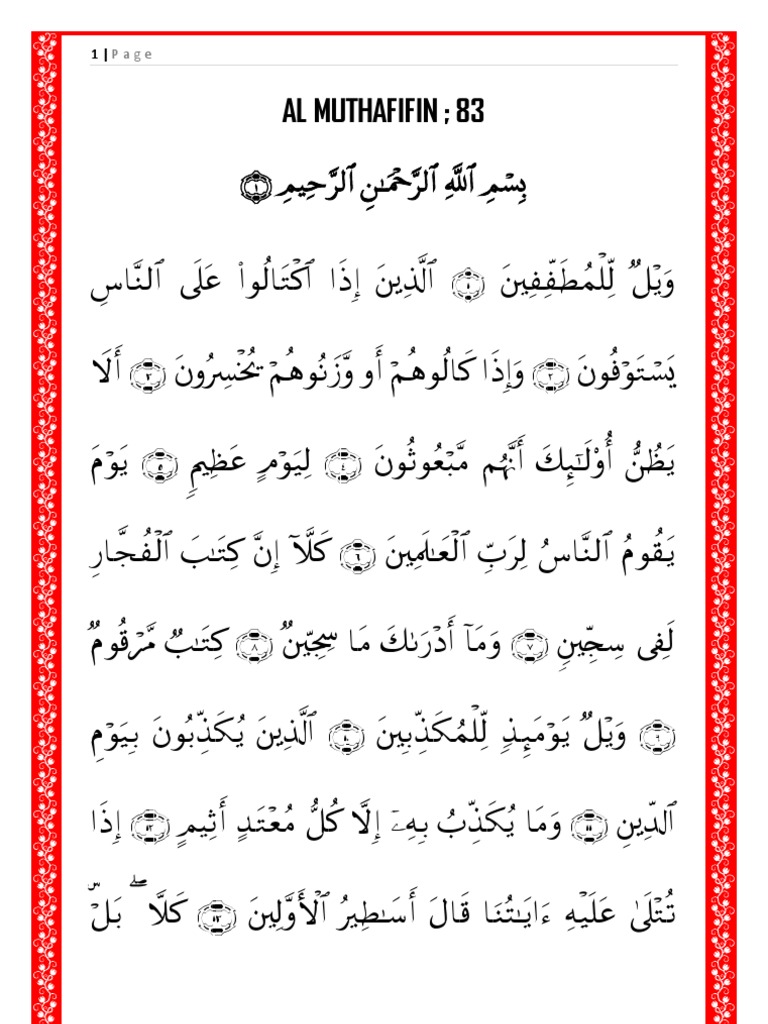 1 | Page
AL MUTHAFIFIN ; 83
بِسْمِ ٱللَّهِ ٱلرَّحْمَـٰنِ ٱلرَّحِيمِ ١
وَيْلٌ لِّلْمُطَفِّفِينَ ١ ٱلَّذِينَ إِذَا ٱكْتَالُوا۟ عَلَى ٱلنَّاسِ
يَسْتَوْفُونَ ٢ وَإِذَا كَالُوهُمْ أَو وَّزَنُوهُمْ يُخْسِرُونَ ٣ أَلَا
يَظُنُّ أُو۟لَـٰٓئِكَ أَنَّهُم مَّبْعُوثُونَ ٤ لِيَوْمٍ عَظِيمٍ ٥ يَوْمَ
يَقُومُ ٱلنَّاسُ لِرَبِّ ٱلْعَـٰلَمِينَ ٦ كَلَّآ إِنَّ كِتَـٰبَ ٱلْفُجَّارِ
لَفِى سِجِّينٍ ٧ وَمَآ أَدْرَىٰكَ مَا سِجِّينٌ ٨ كِتَـٰبٌ مَّرْقُومٌ
٩ وَيْلٌ يَوْمَئِذٍ لِّلْمُكَذِّبِينَ ١٠ ٱلَّذِينَ يُكَذِّبُونَ بِيَوْمِ
ٱلدِّينِ ١١ وَمَا يُكَذِّبُ بِهِۦٓ إِلَّا كُلُّ مُعْتَدٍ أَثِيمٍ ١٢ إِذَا
تُتْلَىٰ عَلَيْهِ ءَايَـٰتُنَا قَالَ أَسَـٰطِيرُ ٱلْأَوَّلِينَ ١٣ كَلَّا ۖ بَلْ ۜ